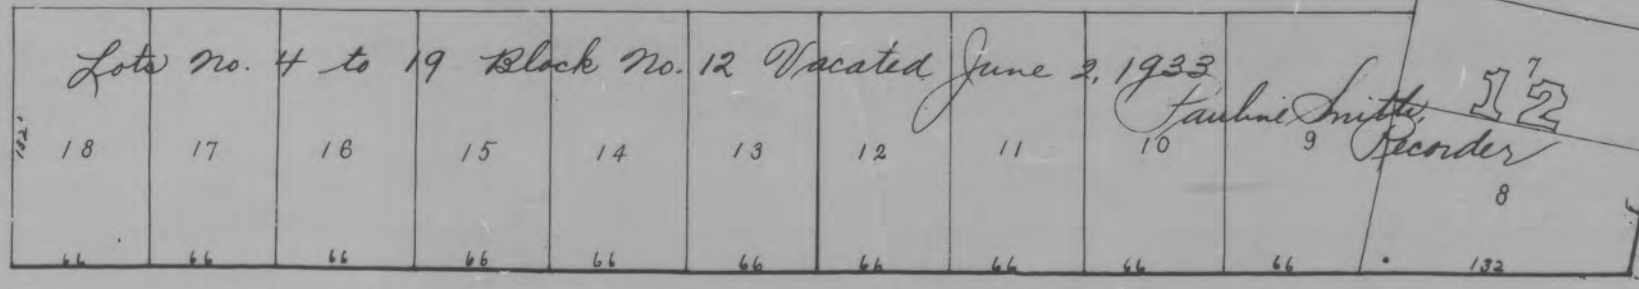 Lots No. 4 to 19 Block No. 12 Vacated June 2, 1933
Pauline Smith,
Recorder
7
12
132'
18 17 16 15 14 13 12 11 10 9
8
66 66 66 66 66 66 66 66 66 66 132